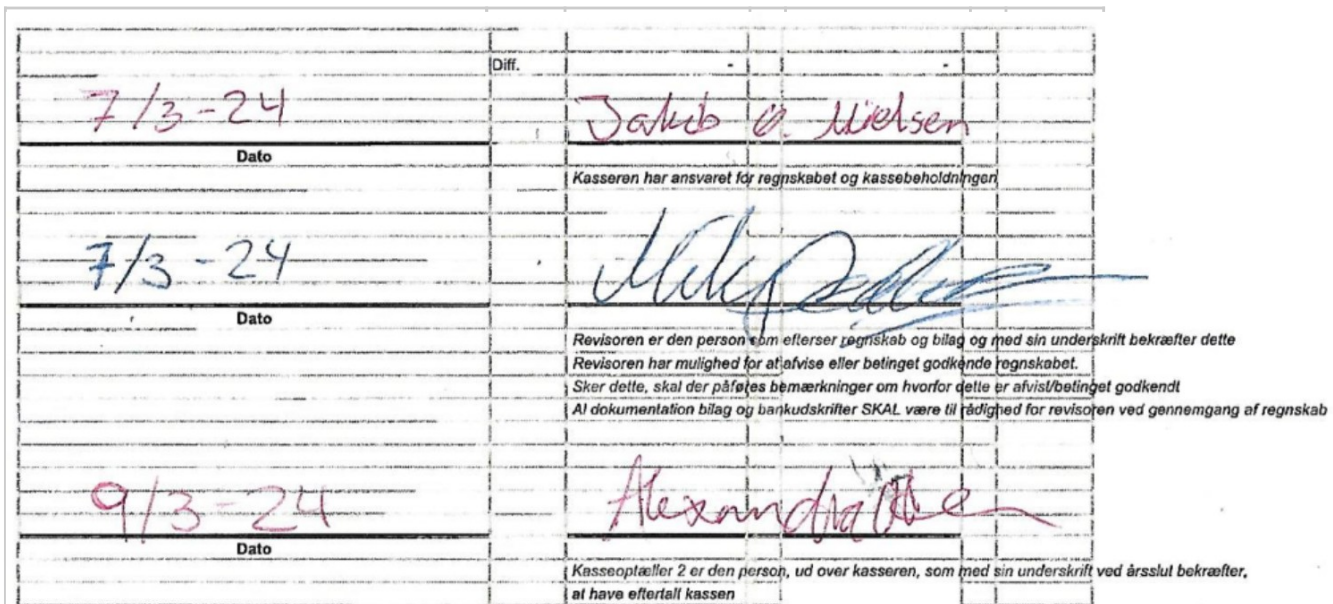 Diff. - -
7/3-24 Jakob Ø. Nielsen
Dato
Kasseren har ansvaret for regnskabet og kassebeholdningen
7/3-24
Dato
Revisoren er den person som efterser regnskab og bilag og med sin underskrift bekræfter dette
Revisoren har mulighed for at afvise eller betinget godkende regnskabet.
Sker dette, skal der påføres bemærkninger om hvorfor dette er afvist/betinget godkendt
Al dokumentation bilag og bankudskrifter SKAL være til rådighed for revisoren ved gennemgang af regnskab
9/3-24 Alexandra
Dato
Kasseoptæller 2 er den person, ud over kasseren, som med sin underskrift ved årsslut bekræfter,
at have eftertalt kassen